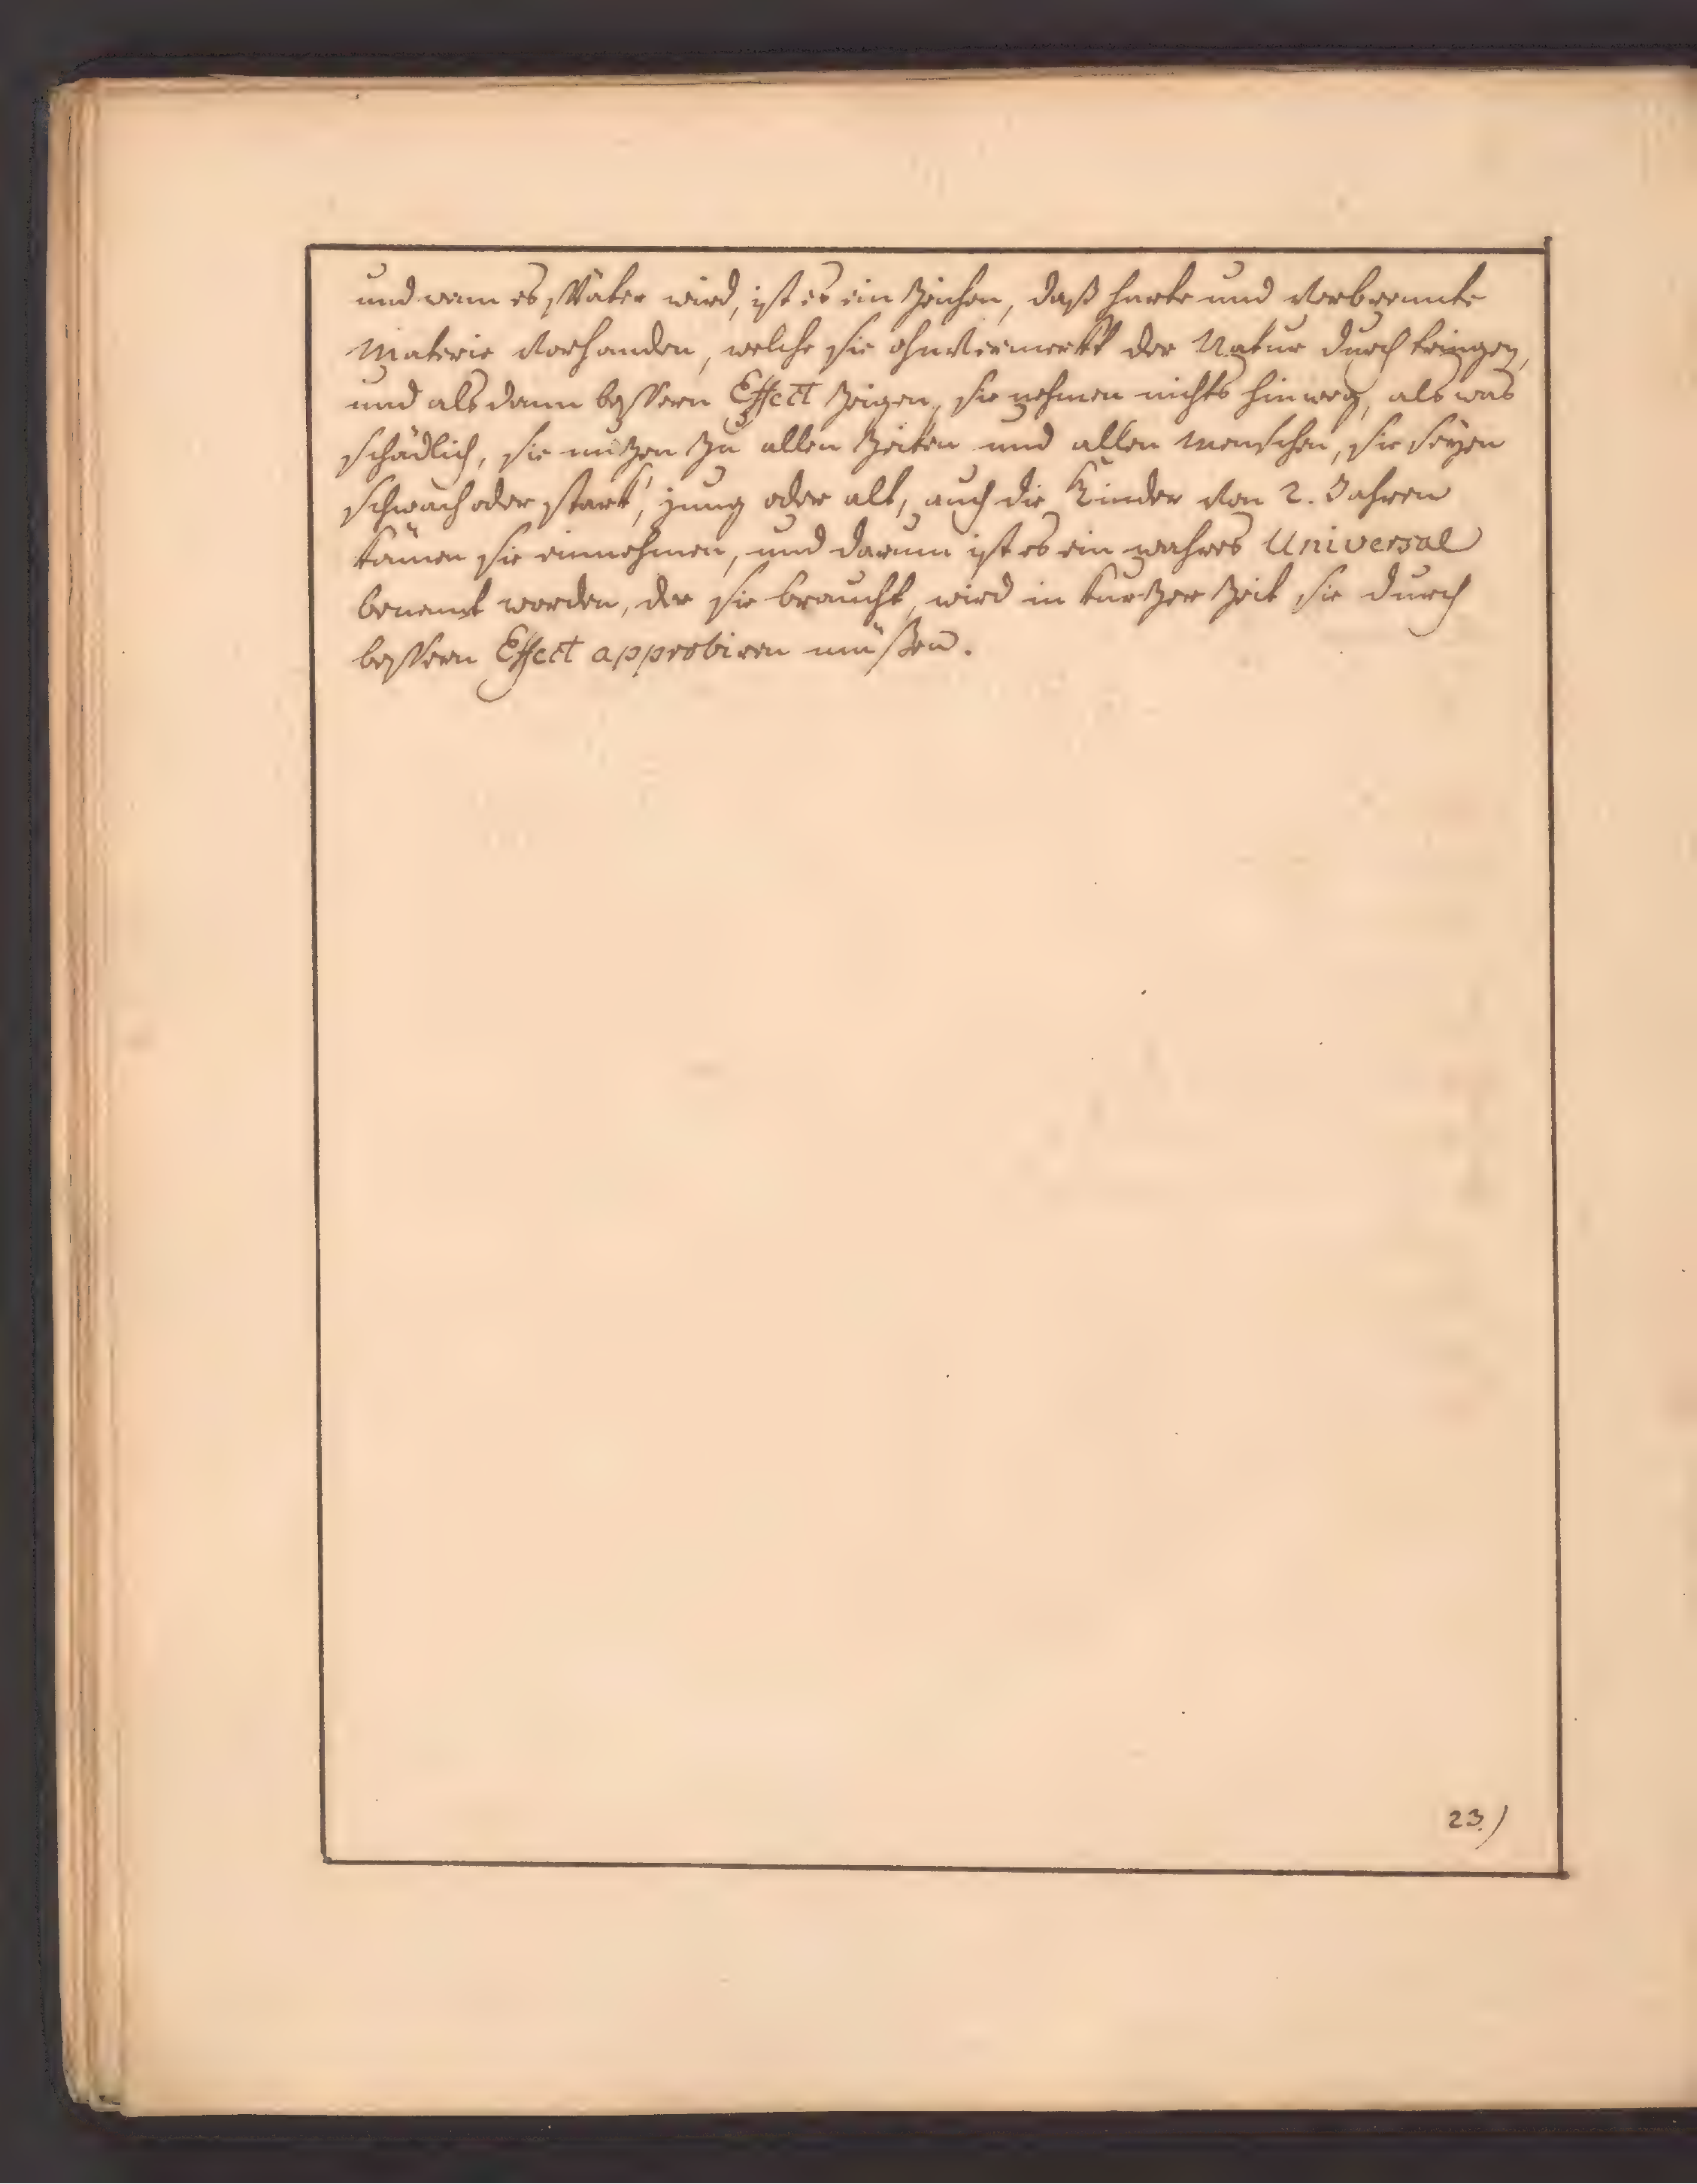 und wenn es später wird, ist es ein Zeichen, daß harte und verbrennte
Materie vorhanden, welche sie ohnvermerkt der Natur durch tringen,
und als dann bessern Effect zeigen, sie nehmen nichts hinweg, als was
schädlich, sie nutzen zu allen Zeiten und allen Menschen, sie seÿen
schwach oder stark, jung oder alt, auch die Kinder von 2. Jahren
könen sie einnehmen, und darum ist es ein wahres Universal
benent worden, der sie braucht, wird in kurtzer Zeit sie durch
bessern Effect approbiren müßen.
23.)